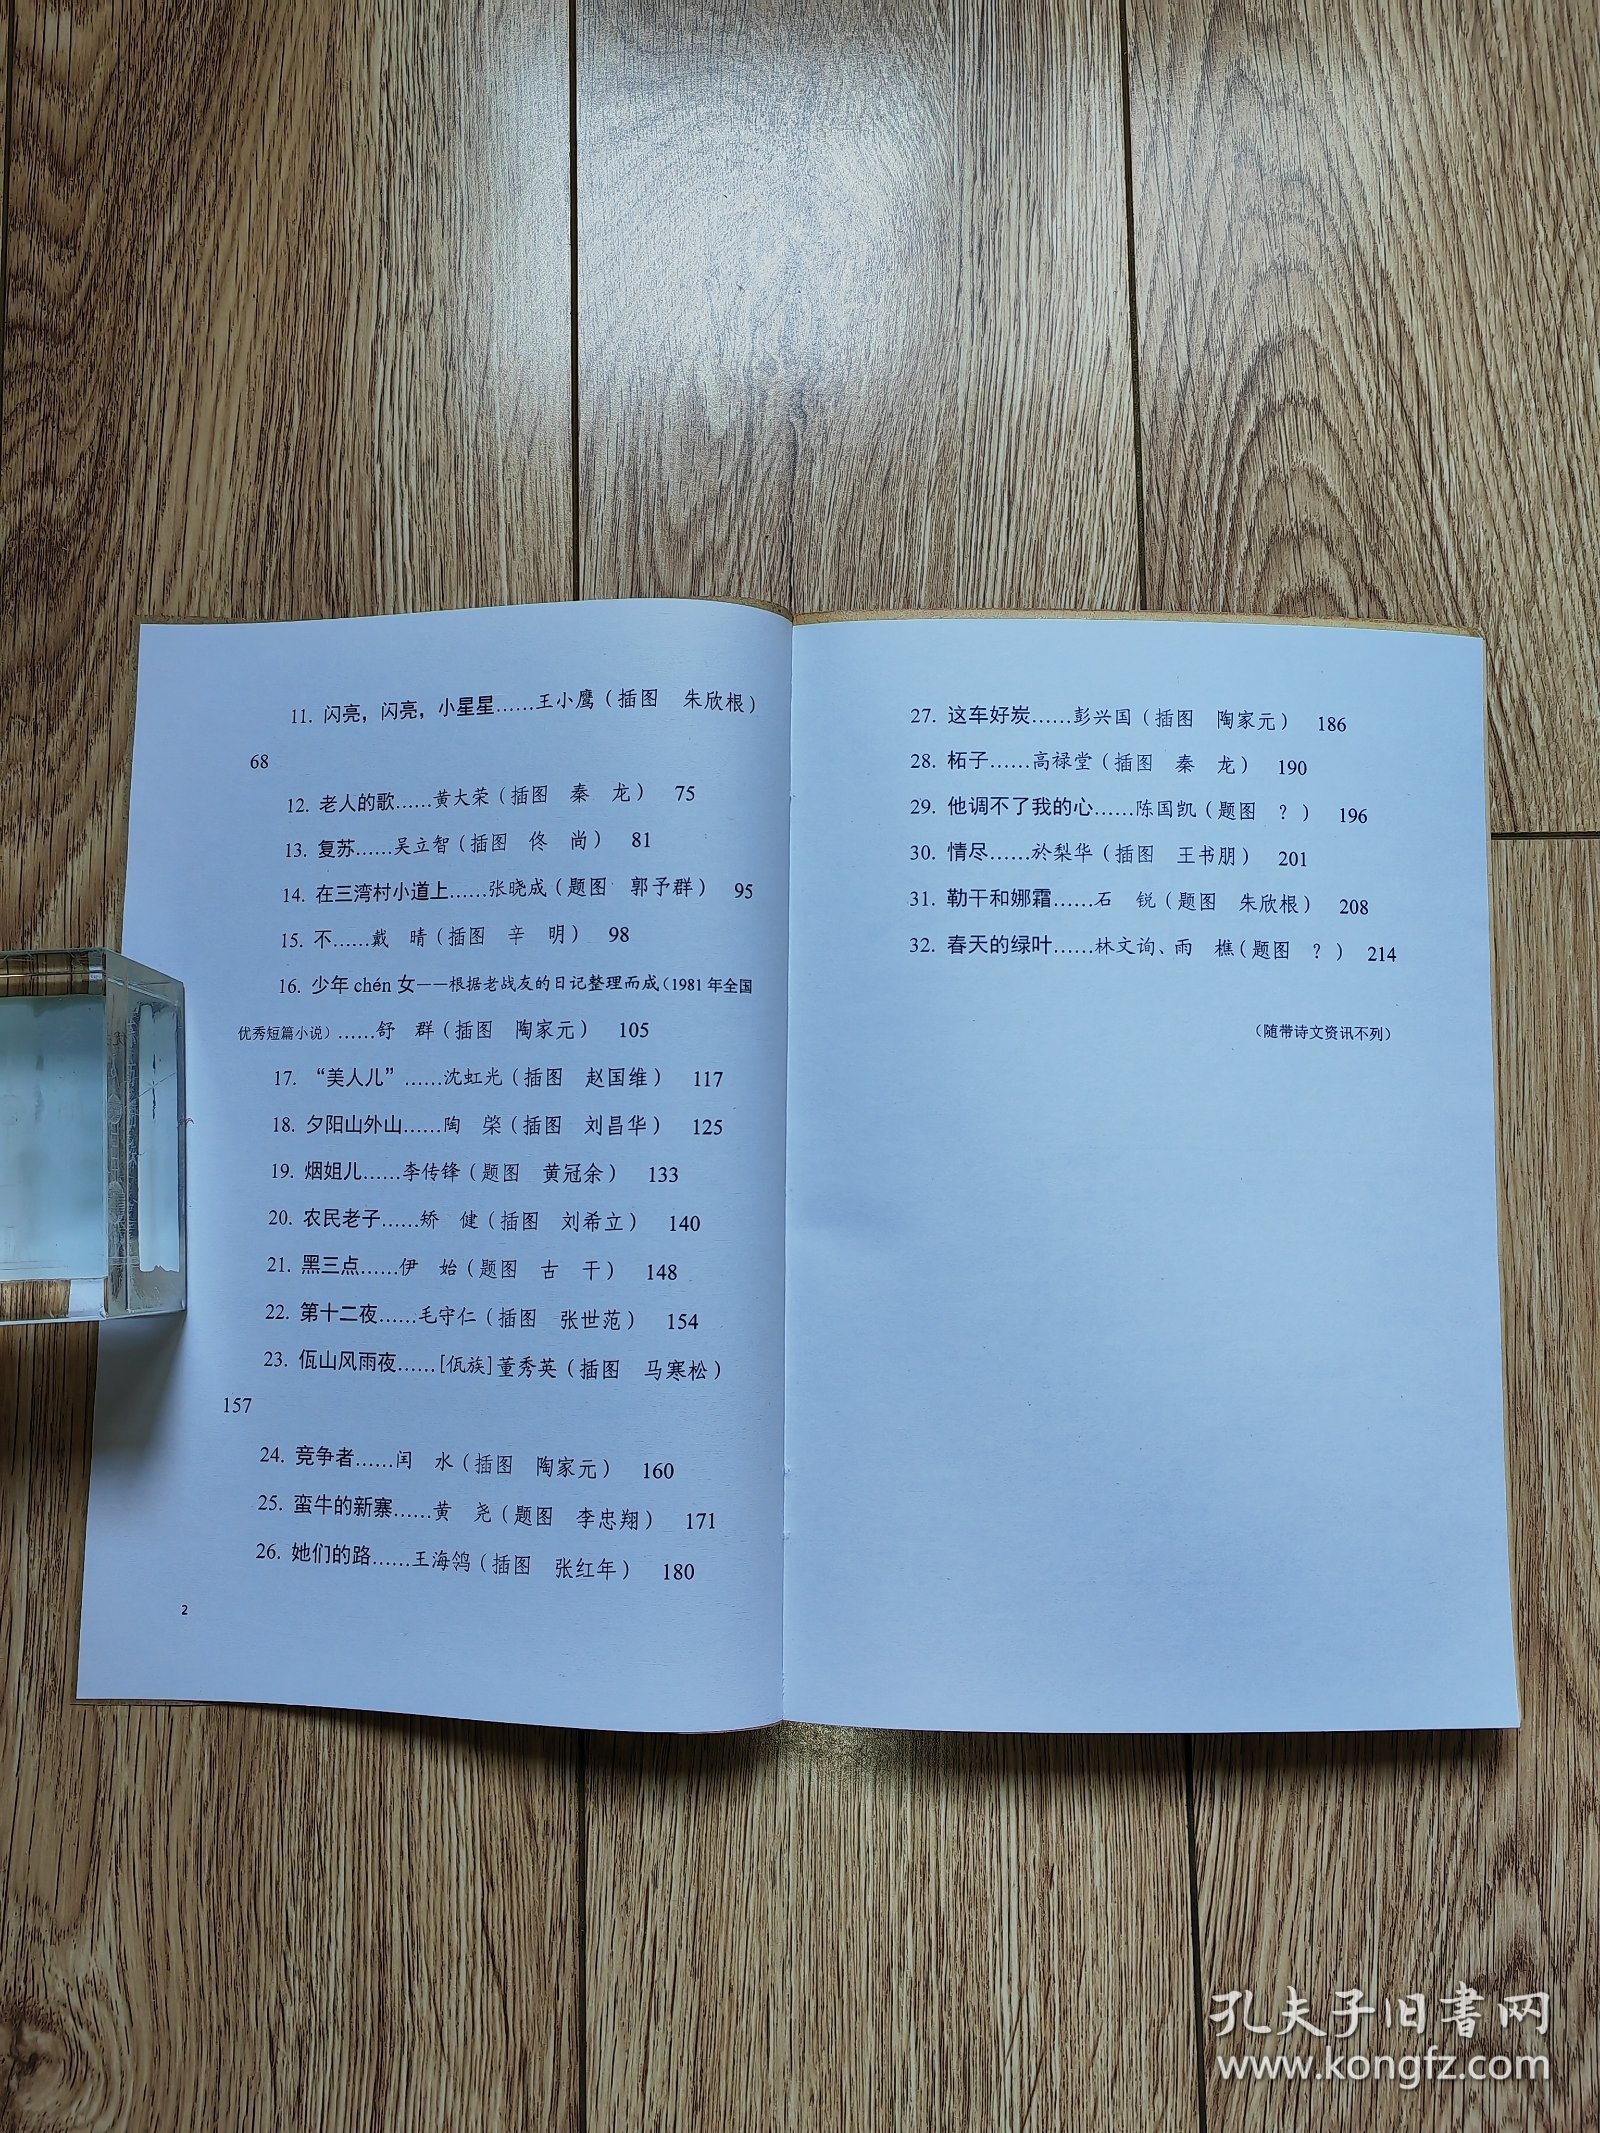 11. 闪亮，闪亮，小星星……王小鹰（插图　朱欣根）
68
12. 老人的歌……黄大荣（插图　秦　龙）　75
13. 复苏……吴立智（插图　佟　尚）　81
14. 在三湾村小道上……张晓成（题图　郭予群）　95
15. 不……戴　晴（插图　辛　明）　98
16. 少年 chén 女——根据老战友的日记整理而成（1981 年全国
优秀短篇小说）……舒　群（插图　陶家元）　105
17. “美人儿”……沈虹光（插图　赵国维）　117
18. 夕阳山外山……陶　棨（插图　刘昌华）　125
19. 烟姐儿……李传锋（题图　黄冠余）　133
20. 农民老子……矫　健（插图　刘希立）　140
21. 黑三点……伊　始（题图　古　干）　148
22. 第十二夜……毛守仁（插图　张世范）　154
23. 佤山风雨夜……［佤族］董秀英（插图　马寒松）
157
24. 竞争者……闫　水（插图　陶家元）　160
25. 蛮牛的新寨……黄　尧（题图　李忠翔）　171
26. 她们的路……王海鸰（插图　张红年）　180
2
27. 这车好炭……彭兴国（插图　陶家元）　186
28. 柘子……高禄堂（插图　秦　龙）　190
29. 他调不了我的心……陈国凯（题图　？）　196
30. 情尽……於梨华（插图　王书朋）　201
31. 勒干和娜霜……石　锐（题图　朱欣根）　208
32. 春天的绿叶……林文询、雨　樵（题图　？）　214
（随带诗文资讯不列）
孔夫子旧书网
www.kongfz.com